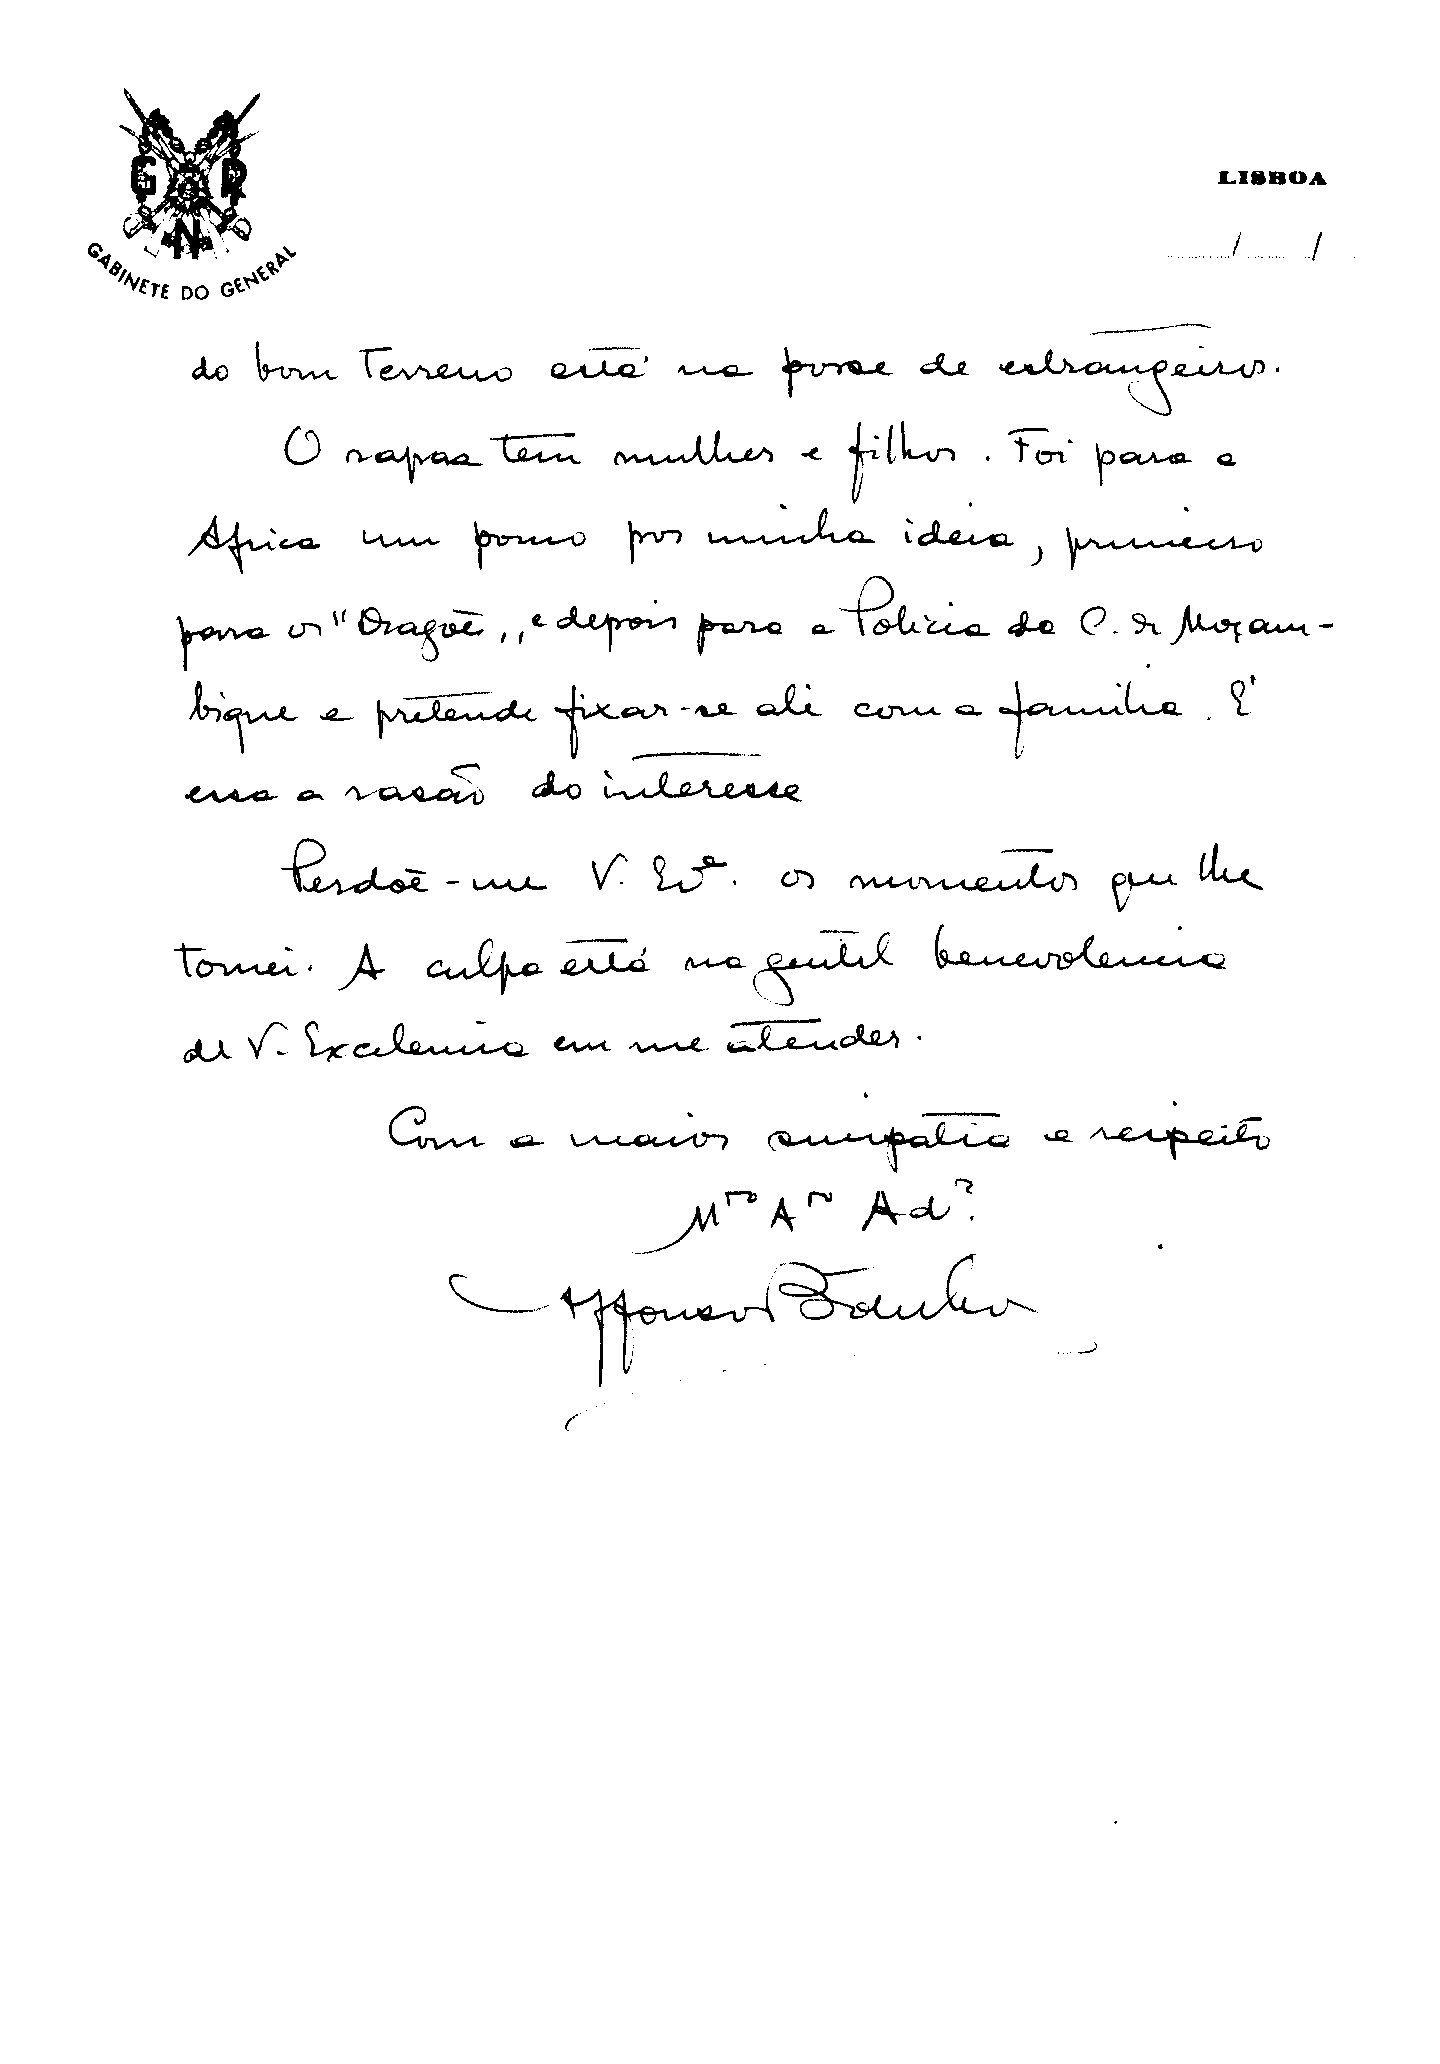 G N R
GABINETE DO GENERAL
LISBOA
/ /
do bom terreno está na posse de estrangeiros.
O rapaz tem mulher e filhos. Foi para a
Africa um pouco por minha ideia, primeiro
para os "Dragoẽs,, e depois para a Policia da C. de Moçam-
bique e pretende fixar-se ali com a familia. E'
essa a rasão do interesse
Perdoe-me V. Exª. os momentos que lhe
tomei. A culpa está na gentil benevolencia
de V. Excelencia em me atender.
Com a maior simpatia e respeito
Mᵗᵒ Aᵗᵒ Adᵒʳ.
Affonso Botelho